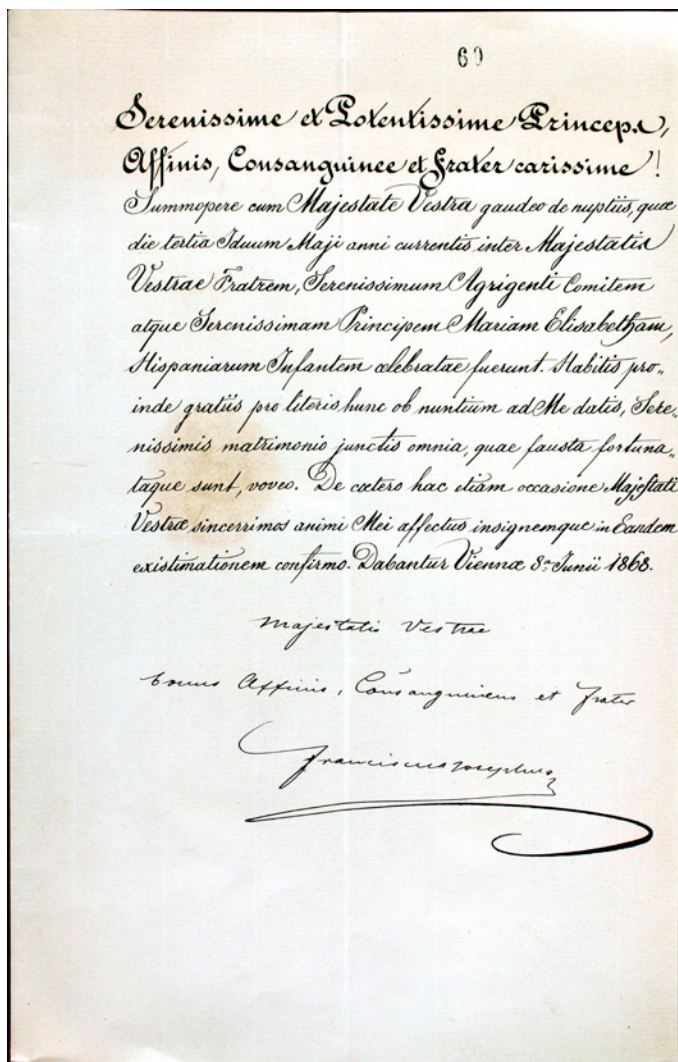 60
Serenissime et Potentissime Princeps,
Affinis, Consanguinee et Frater carissime!
Summopere cum Majestate Vestra gaudeo de nuptiis, quæ
die tertia Iduum Maji anni currentis inter Majestatis
Vestrae Fratrem, Serenissimum Agrigenti Comitem
atque Serenissimam Principem Mariam Elisabetham,
Hispaniarum Infantem celebratae fuerunt. Habitis pro„
inde gratiis pro literis hunc ob nuntium ad Me datis, Sere„
nissimis matrimonio junctis omnia, quae fausta fortuna„
taque sunt, voveo. De cætero hac etiam occasione Majestati
Vestræ sincerrimos animi Mei affectus insignemque in Eandem
existimationem confirmo. Dabantur Viennæ 8ª Junii 1868.
Majestatis Vestrae
bonus Affinis, Consanguineus et Frater
Franciscus Josephus